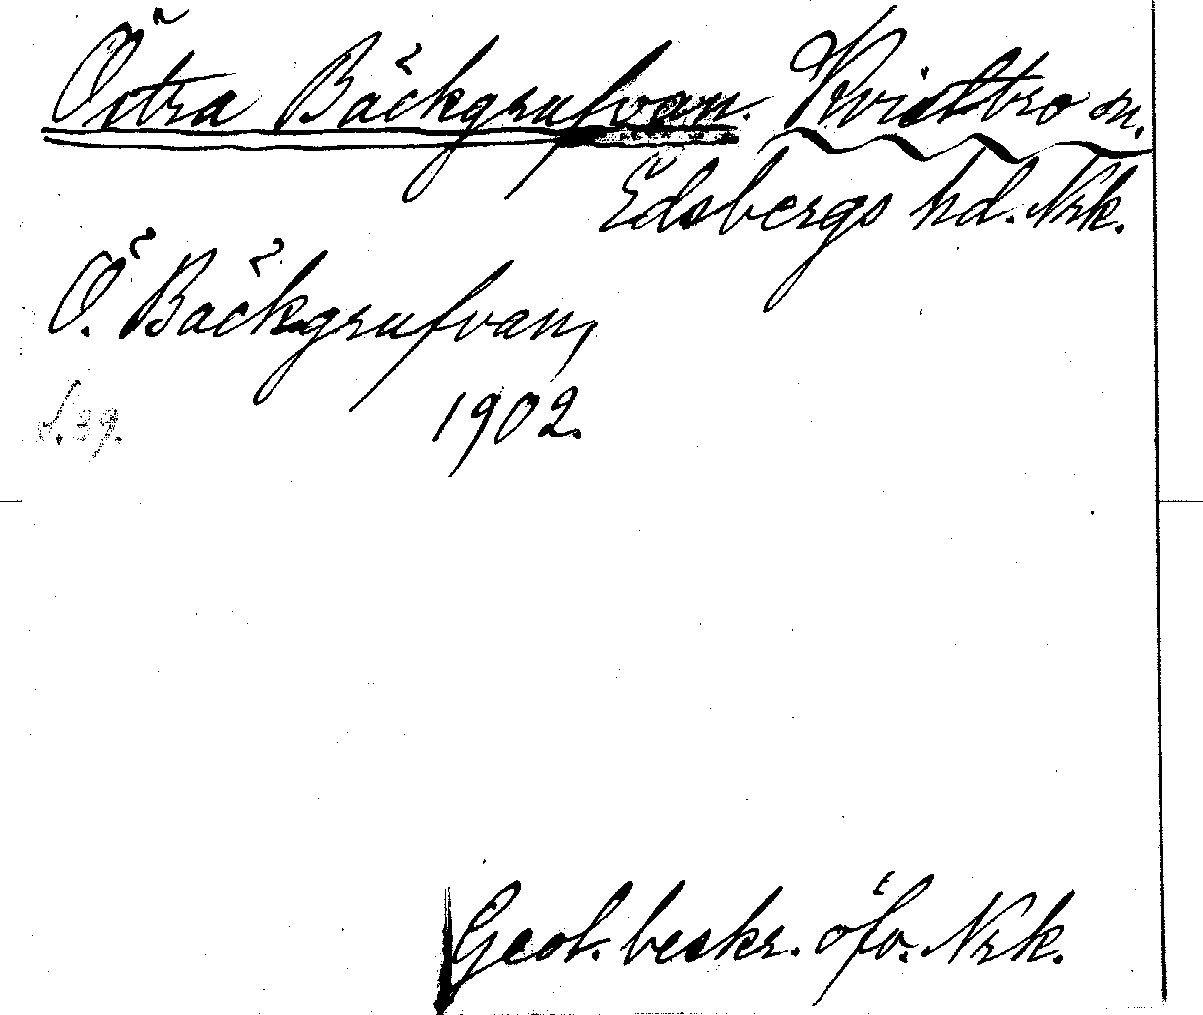 Östra Bäckgrufvan. Kvistbro sn.
Edsbergs hd. Nrk.
Ö. Bäckgrufvan,
1902.
S. 39.
Geol. beskr. öfv. Nrk.